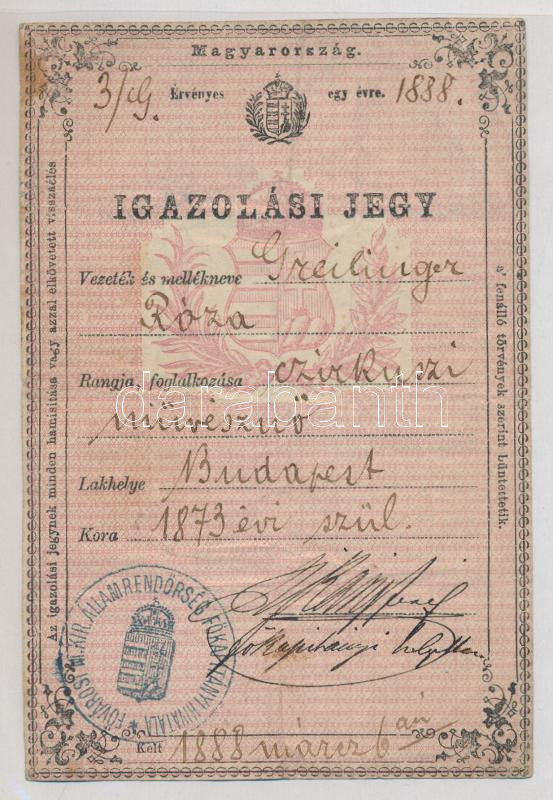 Magyarország.
3/ig. Érvényes egy évre. 1888.
IGAZOLÁSI JEGY
Vezeték és mellékneve Greilinger
Róza
Rangja, foglalkozása czirkuszi
művésznő
Lakhelye Budapest
Kora 1873 évi szül.
főkapitányi
Kelt 1888 márcz 6 án
Az igazolási jegynek minden hamisitása vagy azzal elkövetett visszaélés
a' fenálló törvények szerint büntettetik.
FŐVÁROSI M. KIR. ÁLLAMRENDŐRSÉG FŐKAPITÁNYI HIVATAL
darabanth